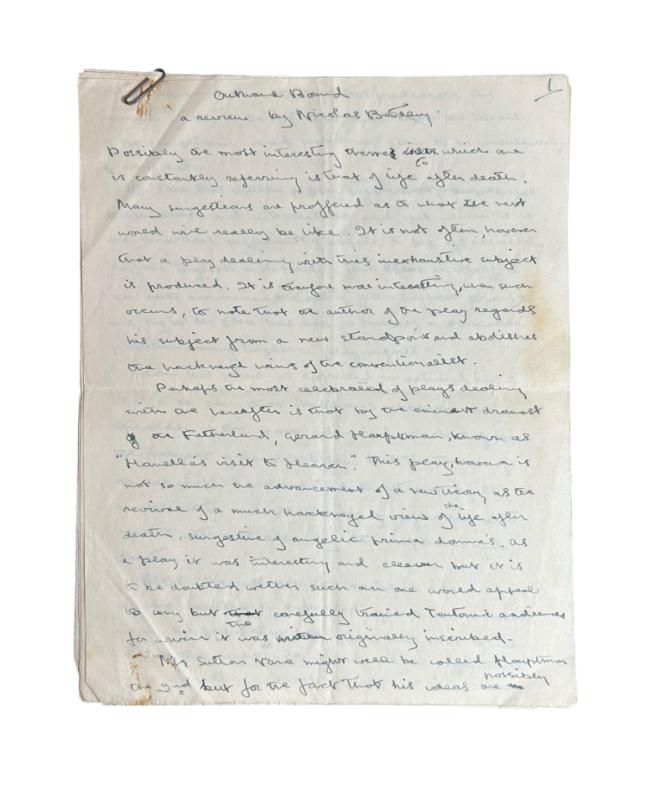 1
Outward Bound
a review by Nicolas Bentley.
Possibly the most interesting theme to which one
is constantly referring is that of life after death.
Many suggestions are proffered as to what the next
world will really be like. It is not often, however
that a play dealing with this inexhaustive subject
is produced. It is therefore more interesting, when such
occurs, to note that the author of the play regards
his subject from a new standpoint and abolishes
the hackneyed views of the conventionalist.
Perhaps the most celebrated of plays dealing
with the hereafter is that by the eminent dramatist
of the Fatherland, Gerard Hauptman, known as
"Hanella's visit to Heaven". This play, however is
not so much the advancement of a new theory, as the
revival of a much hackneyed view of the life after
death, suggestive of angelic prima donna's. As
a play it was interesting and clever but it is
to be doubted wether such an one would appeal
to any but carefully trained Teutonic audiences
for which it was originally inscribed.
Mr Sutton Vane might well be called Hauptman
the 2nd but for the fact that his ideas are possibly